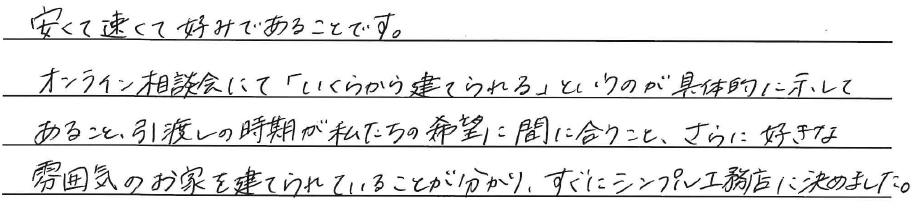 安くて速くて好みであることです。
オンライン相談会にて「いくらから建てられる」というのが具体的に示して
あること、引渡しの時期が私たちの希望に間に合うこと、さらに好きな
雰囲気のお家を建てられていることが分かり、すぐにシンプル工務店に決めました。